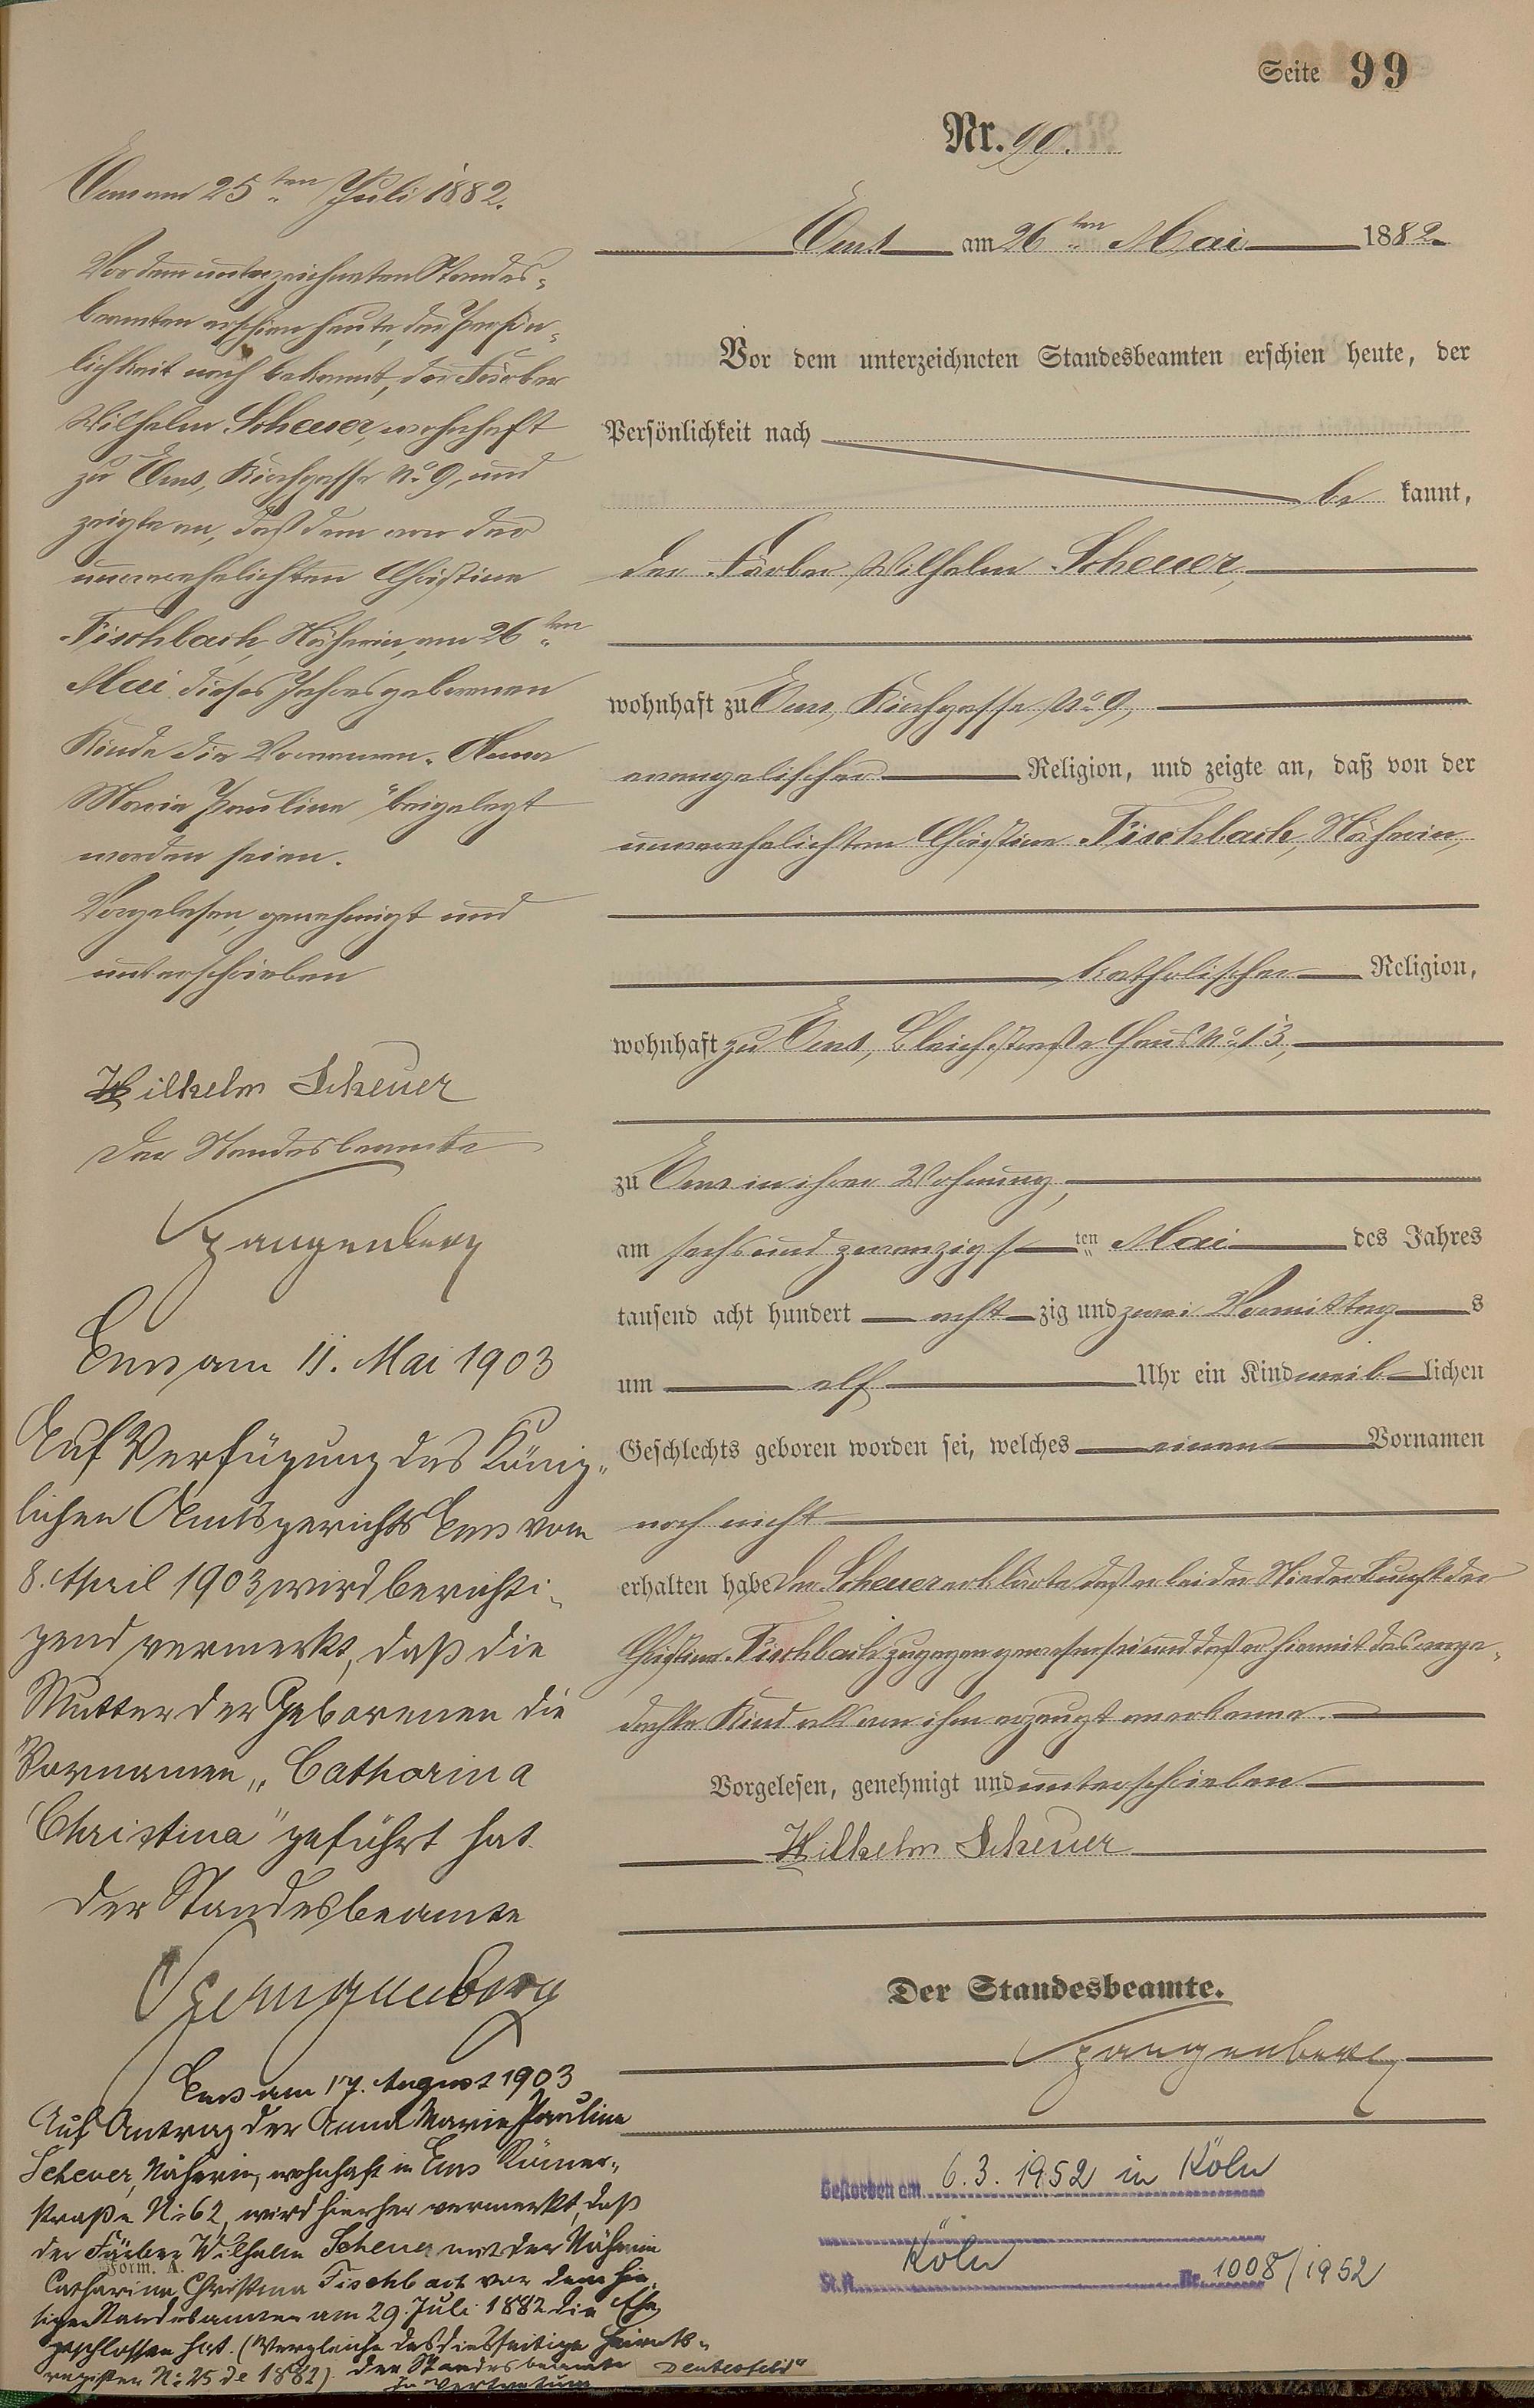 Seite 99
Nr. 90.
Ems am 26ten Mai 1882
Vor dem unterzeichneten Standesbeamten erschien heute, der
Persönlichkeit nach
be kannt,
der Färber Wilhelm Scheuer,
wohnhaft zu Ems, Kirchgasse No 9,
evangelischer Religion, und zeigte an, daß von der
unverehelichten Christine Fischbach, Näherin,
katholischer Religion,
wohnhaft zu Ems, Bleichstraße Haus No 13,
zu Ems in ihrer Wohnung,
am sechs und zwanzigsten Mai des Jahres
tausend acht hundert acht zig und zwei Vormittags
um elf Uhr ein Kind weiblichen
Geschlechts geboren worden sei, welches einen Vornamen
noch nicht
erhalten habe Der Scheuer erklärte daß er bei der Niederkunft der
Christine Fischbach zugegen gewesen sei und daß er hiermit das ange-
dachte Kind als von ihm erzeugt anerkenne.
Vorgelesen, genehmigt und unterschrieben
Wilhelm Scheuer
Der Standesbeamte.
Spangenberg
Ems am 25ten Juli 1882.
Vor dem unterzeichneten Standes-
beamten erschien heute, der Persön-
lichkeit nach bekannt, der Färber
Wilhelm Scheuer, wohnhaft
zu Ems, Kirchgasse No 9, und
zeigte an, daß dem von der
unverehelichten Christine
Fischbach, Näherin, am 26ten
Mai dieses Jahres geborenen
Kinde die Vornamen "Anna
Maria Pauline" beigelegt
worden seien.
Vorgelesen, genehmigt und
unterschrieben
Wilhelm Scheuer
Der Standesbeamte
Spangenberg
Ems am 11. Mai 1903
Auf Verfügung des König-
lichen Amtsgerichts Ems vom
8. April 1903 wird berichti-
gend vermerkt, daß die
Mutter der Geborenen die
Vornamen "Catharina
Christina" geführt hat.
Der Standesbeamte
Spangenberg
Ems am 17. August 1903
Auf Antrag der Anna Marie Pauline
Scheuer, Näherin, wohnhaft in Ems Römer-
straße No 62, wird hierher vermerkt, daß
der Färber Wilhelm Scheuer mit der Näherin
Form. A.
Catharina Christina Fischbach vor dem hie-
sigen Standesbeamten am 29. Juli 1882 die Ehe
geschlossen hat. (Vergleiche das diesseitige Heirats-
register No 25 de 1882). Der Standesbeamte
In Vertretung
Gestorben am 6.3.1952 in Köln
St.A. Köln Nr. 1008/1952